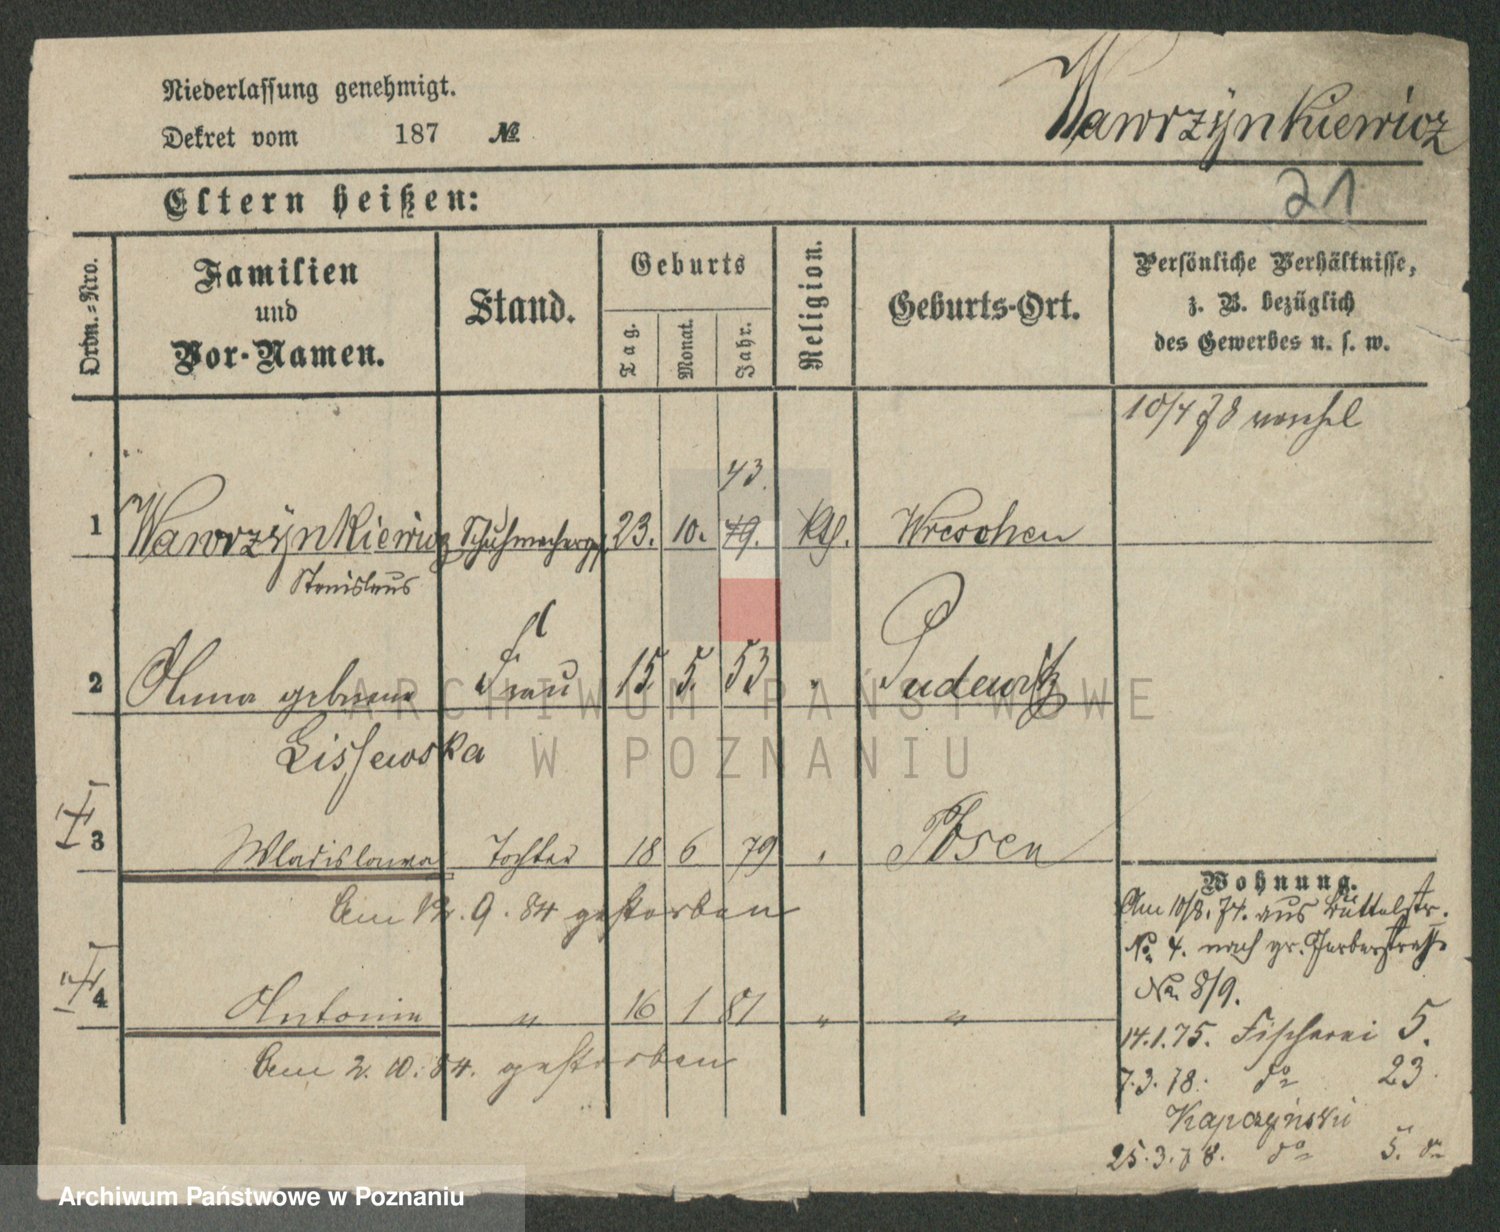 Niederlassung genehmigt.
Wawrzÿnkiewicz
Dekret vom 187 №
Eltern heißen:
21
Ordn.-Nro.
Familien
und
Vor-Namen.
Stand.
Geburts
Tag.
Monat.
Jahr.
Religion.
Geburts-Ort.
Persönliche Verhältnisse,
z. B. bezüglich
des Gewerbes u. s. w.
10/4 78
43.
1 Wawrzÿnkiewicz Schuhmacherges. 23. 10. 79. Kth. Wreschen
Stanislaus
2 Anna geborene Frau 15. 5. 53 " Pudewitz
Lissewska
3 Wladislawa Tochter 18 6 79 " Posen
Am 12. 9. 84 gestorben
4 Antonie " 16 1 81 " "
Am 2. 10. 84. gestorben
Wohnung.
Am 10/8. 74. aus Büttelstr.
No 4. nach gr. Gerberstraße
No 8/9.
14.1.75. Fischerei 5.
7.3.78. do 23.
Kapczyński
25.3.78. do 5.
ARCHIWUM PAŃSTWOWE
W POZNANIU
Archiwum Państwowe w Poznaniu